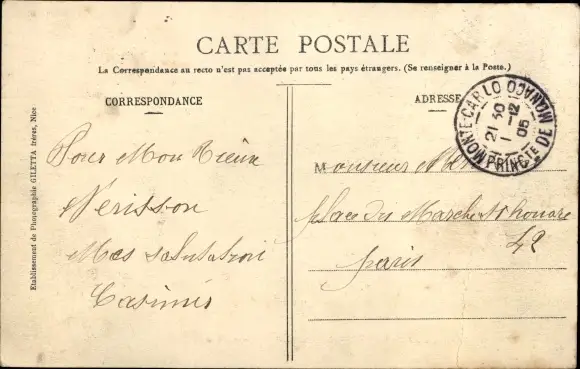 CARTE POSTALE
La Correspondance au recto n'est pas acceptée par tous les pays étrangers. (Se renseigner à la Poste.)
CORRESPONDANCE
ADRESSE
MONTE-CARLO
PRINCTE DE MONACO
21 30
1 -12
05
Etablissement de Photographie GILETTA frères, Nice
Pour Mon
Mes salutation
Casimir
Monsieur
place du Marché St honoré
42
paris